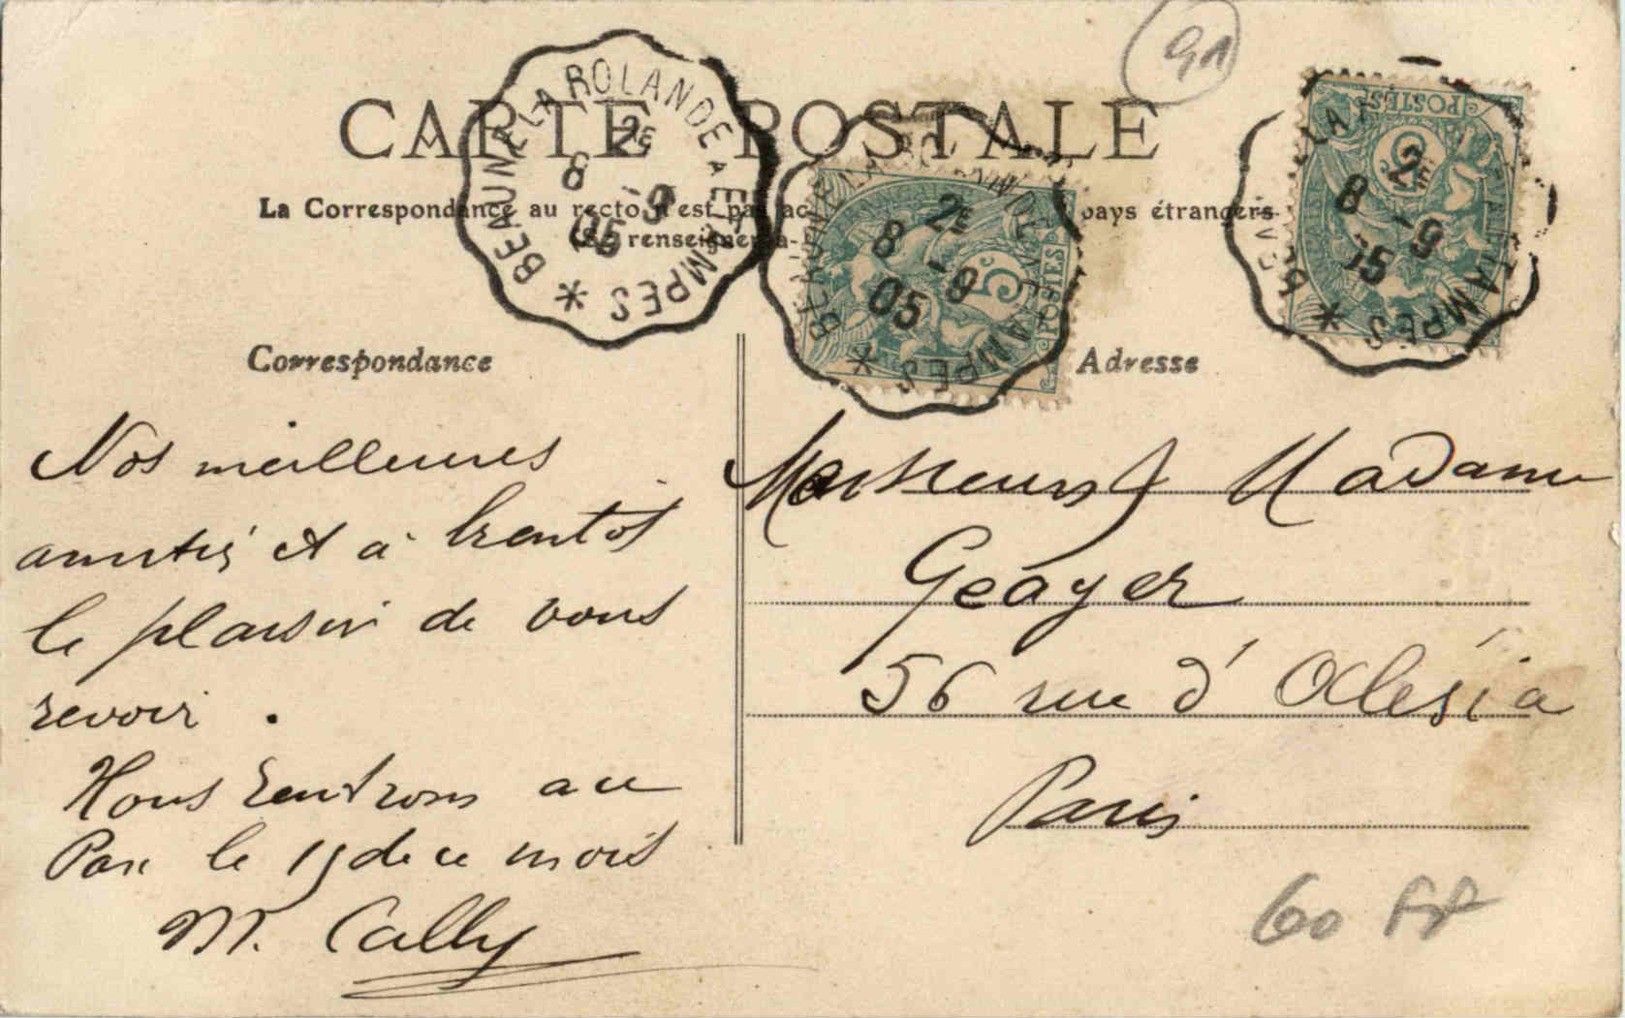 91
CARTE POSTALE
La Correspondance au recto n'est pas ac pays étrangers
renseigner à
BEAUNE LA ROLANDE A ETAMPES *
2E
8 -9
05
BEAUNE LA ROLANDE A ETAMPES *
2E
8 -9
05
5
POSTES
POSTES
5
2E
8 -9
05
ETAMPES *
Correspondance
Adresse
Nos meilleures
amitiés et à bientôt
le plaisir de vous
revoir .
Nous rentrons au
Parc le 15 de ce mois
M. Cally
Monsieur et Madame
Geoyer
56 rue d'Alésia
Paris
60 FF